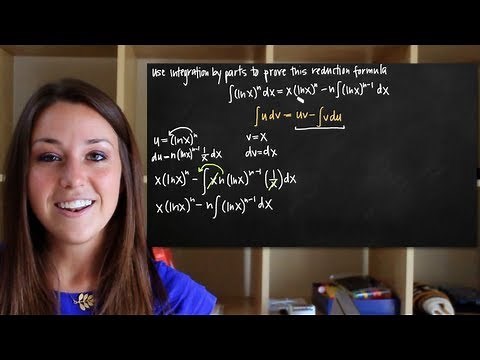 use integration by parts to prove this reduction formula
∫(lnx)ⁿ dx = x(lnx)ⁿ - n∫(lnx)ⁿ⁻¹ dx
∫u dv = uv - ∫v du
u = (lnx)ⁿ v = x
du = n(lnx)ⁿ⁻¹ 1/x dx dv = dx
x(lnx)ⁿ - ∫x n(lnx)ⁿ⁻¹ (1/x) dx
x(lnx)ⁿ - n∫(lnx)ⁿ⁻¹ dx